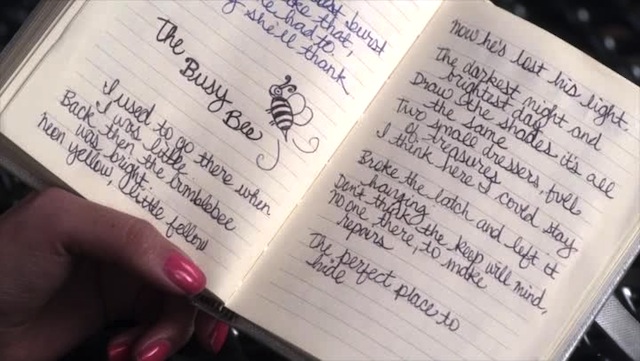 burst
like that,
he had to.
she'll thank
The
Busy
Bee
I used to go there when
I was little
Back then the bumblebee
was bright.
Neon yellow, little fellow
Now he's lost his light.
The darkest night and
brightest day
Draw the shades it's all
the same
Two small dressers, full
of treasures
I think here I could stay
Broke the latch and left it
hanging
Don't think the keep will mind,
No one there, to make
repairs
The perfect place to
hide